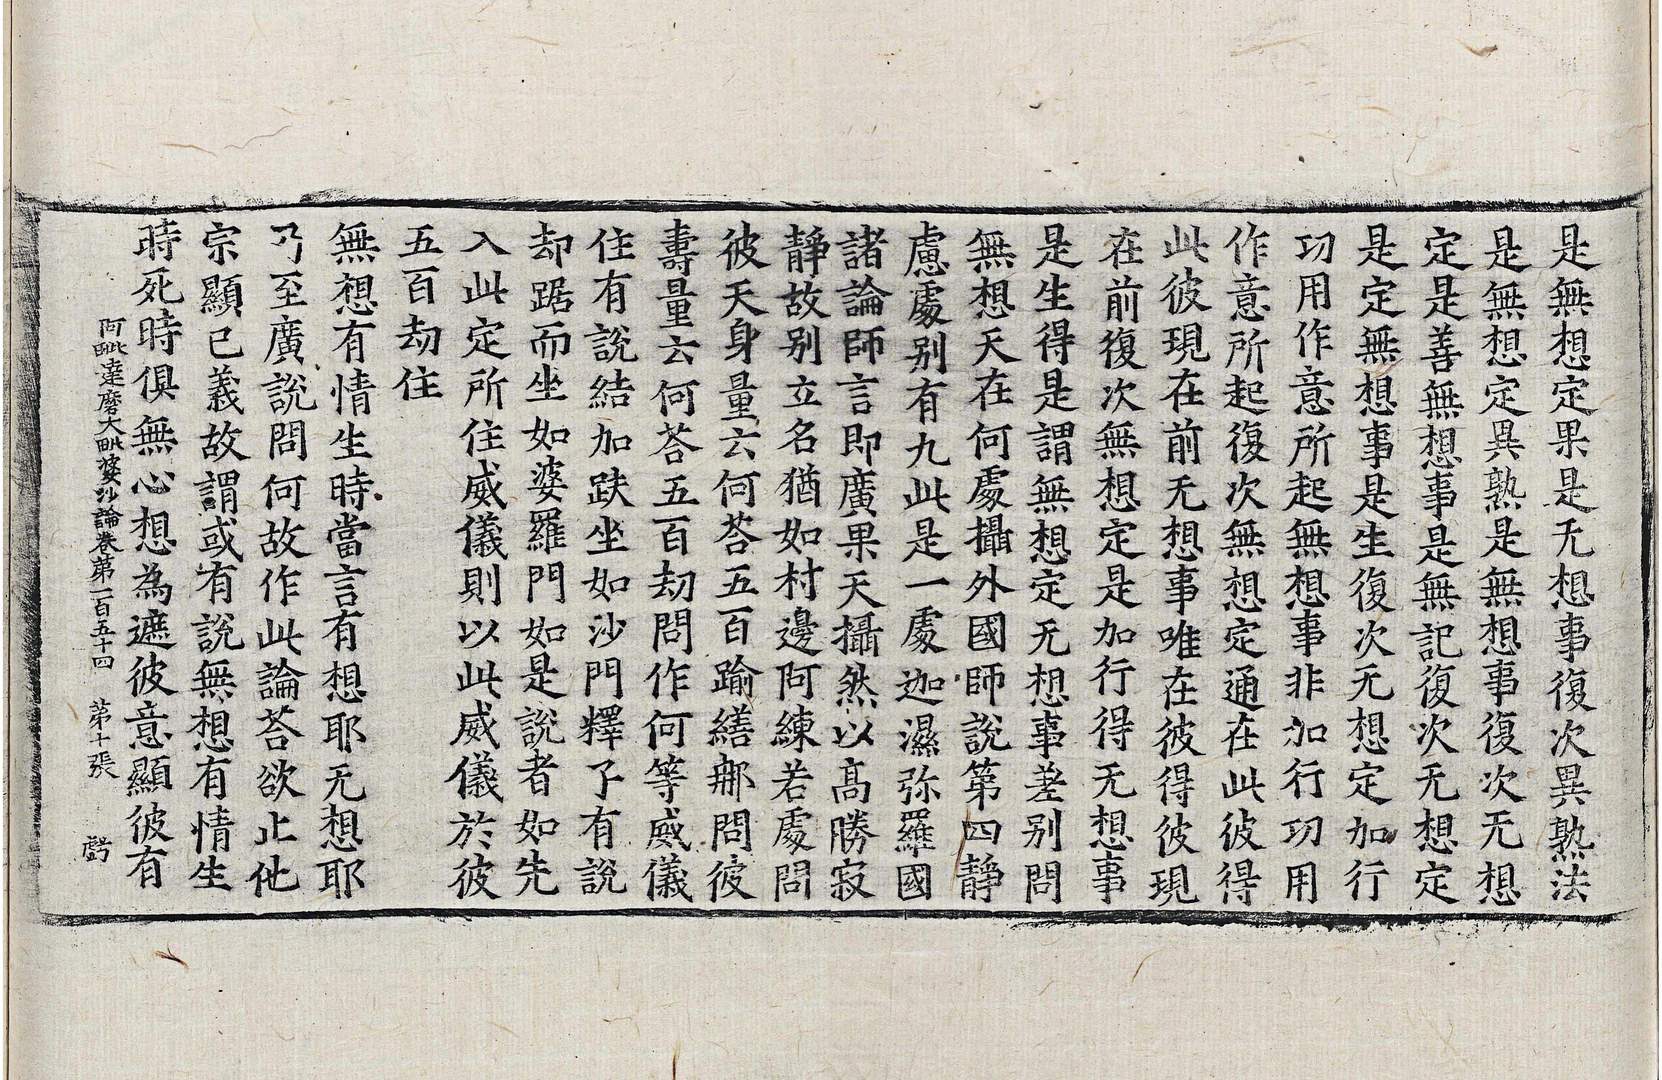 是無想定果是无想事復次異熟法
是無想定異熟是無想事復次无想
定是善無想事是無記復次无想定
是定無想事是生復次无想定加行
功用作意所起無想事非加行功用
作意所起復次無想定通在此彼得
此彼現在前无想事唯在彼得彼現
在前復次無想定是加行得无想事
是生得是謂無想定无想事差别問
無想天在何處攝外國師說第四静
慮處别有九此是一處迦濕弥羅國
諸論師言即廣果天攝然以高勝寂
静故别立名猶如村邊阿練若處問
彼天身量云何荅五百踰繕那問彼
壽量云何荅五百劫問作何等威儀
住有說結加趺坐如沙門釋子有說
却踞而坐如婆羅門如是說者如先
入此定所住威儀則以此威儀於彼
五百劫住
無想有情生時當言有想耶无想耶
乃至廣說問何故作此論荅欲止他
宗顯己義故謂或有說無想有情生
時死時俱無心想為遮彼意顯彼有
阿毗達磨大毗婆沙論卷第一百五十四 第十張 虧